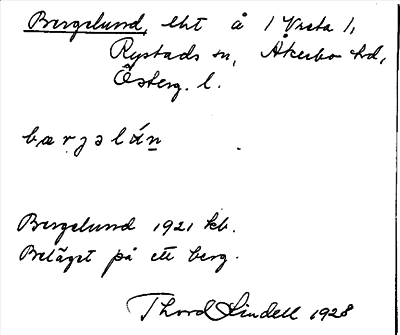 Bergelund, lht å 1 Vreta 1,
Rystads sn, Åkerbo hd,
Österg. l.
bærjəlún̲
Bergelund 1921 kb.
Beläget på ett berg.
Thord Lindell 1928